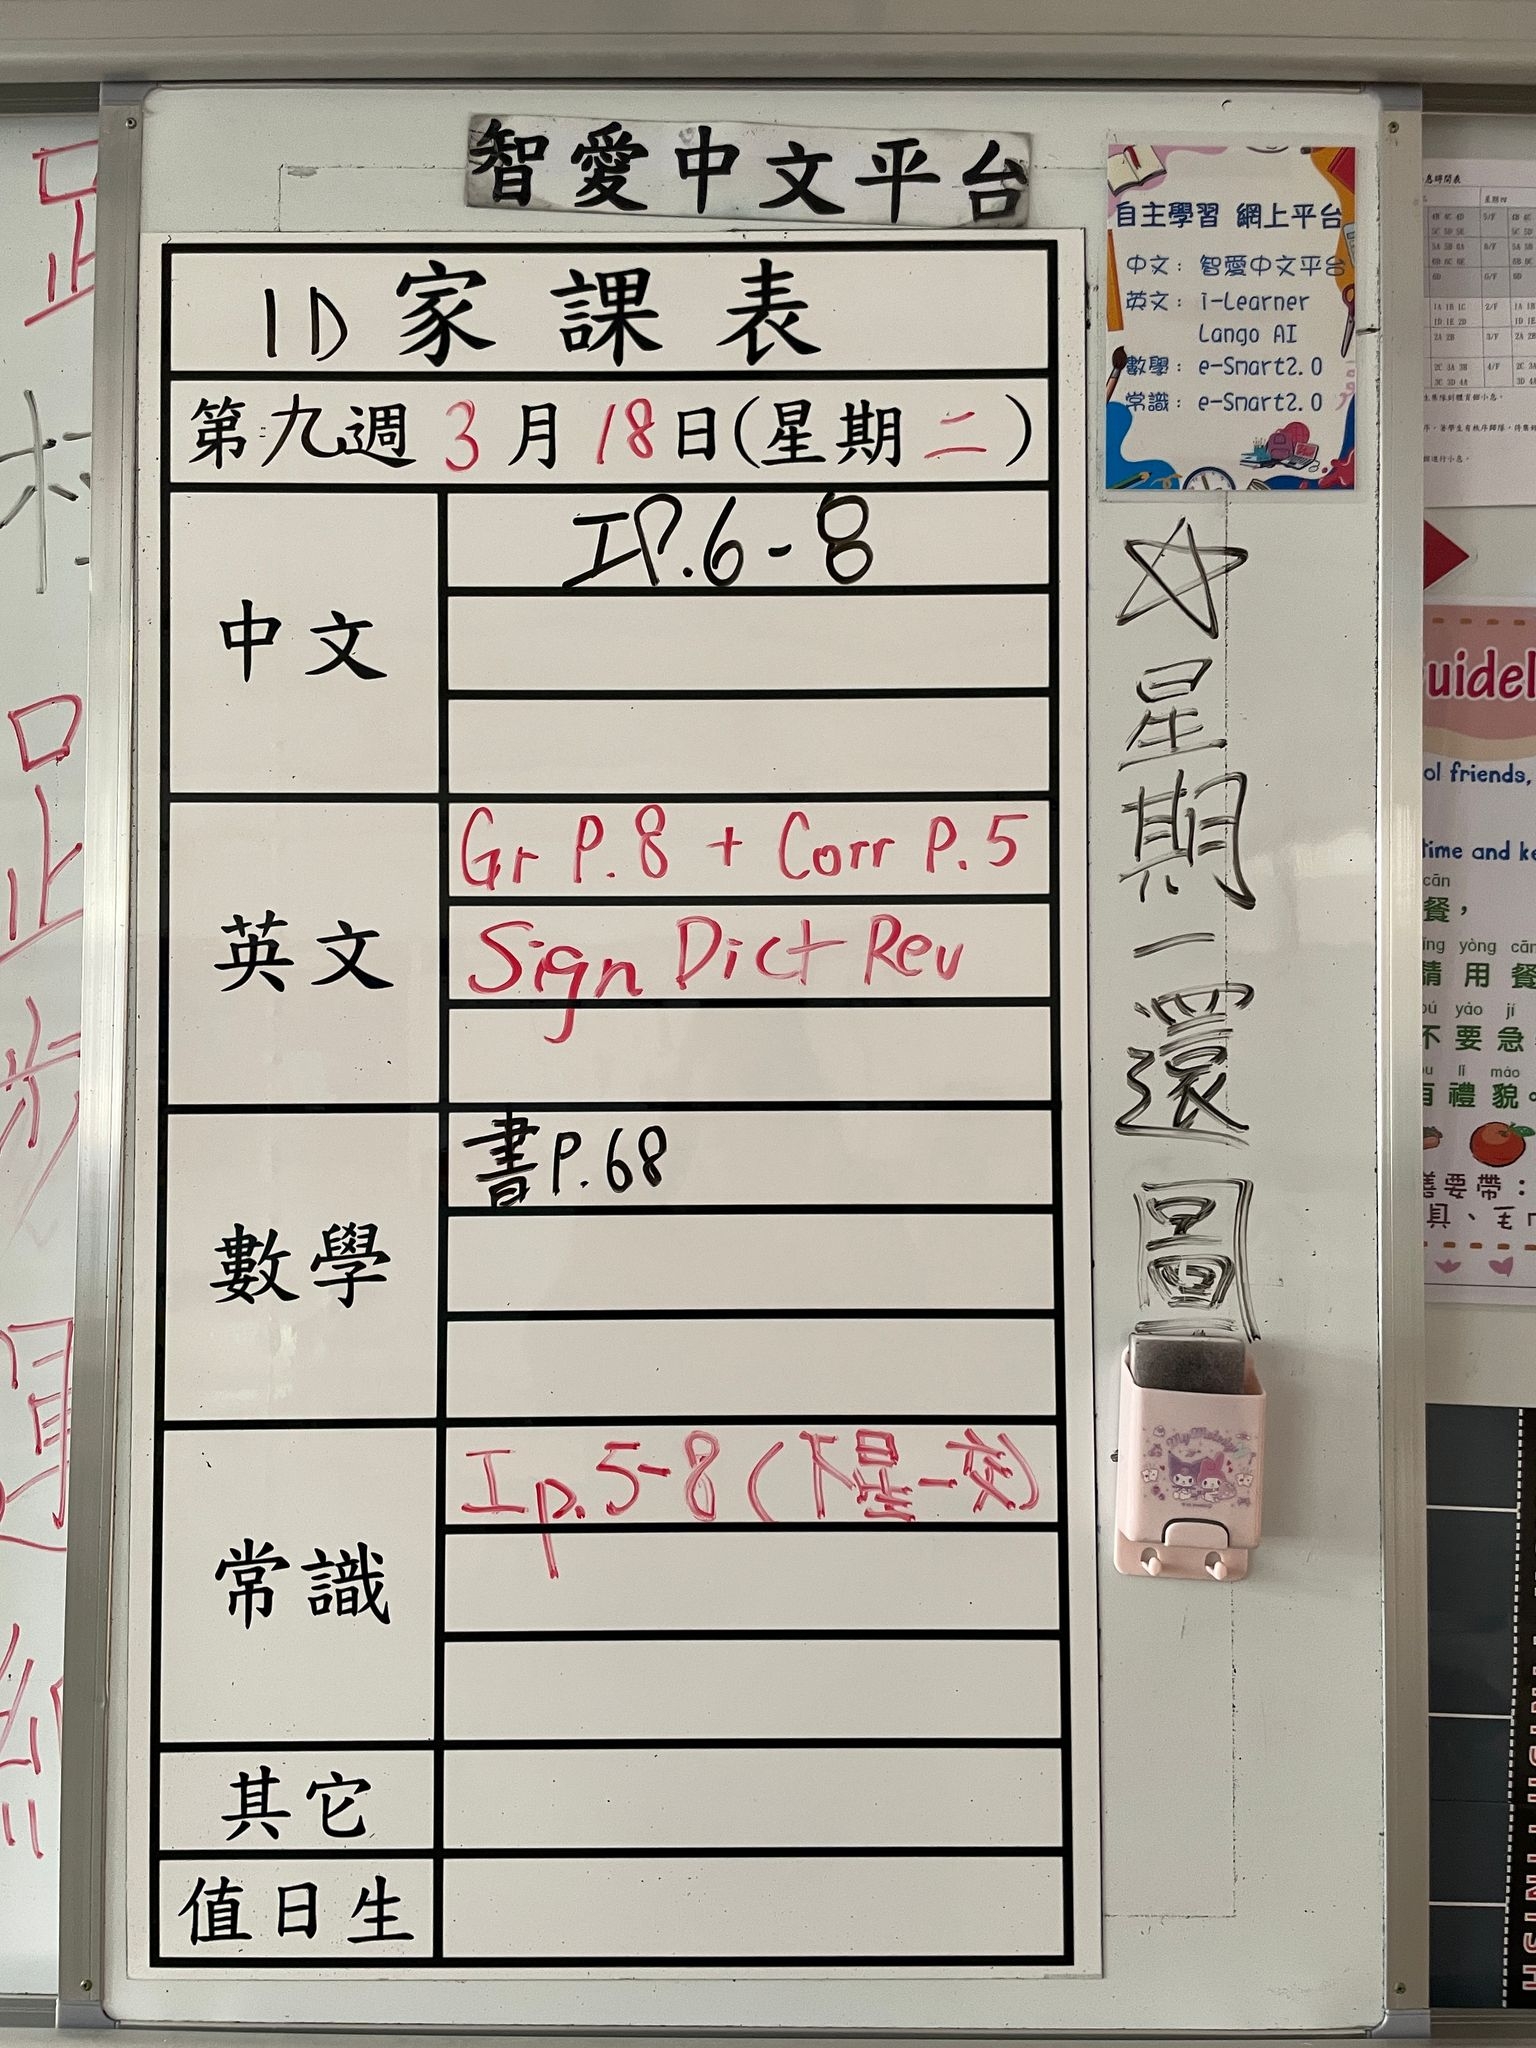 智愛中文平台
1D家課表
第九週3月18日(星期二)
中文
工P.6-8
英文
Gr P.8 + Corr P.5
Sign Dict Rev
數學
書P.68
常識
工p.5-8(下星一交)
其它
值日生
自主學習 網上平台
中文：智愛中文平台
英文：i-Learner
Lango AI
數學：e-Smart2.0
常識：e-Smart2.0
☆星期一還圖
My Melody
星期四
uidel
ol friends,
time and ke
cān
餐，
yòng cān
請用餐
yào jí
不要急
lǐ mào
有禮貌。
善要帶：
具、毛巾